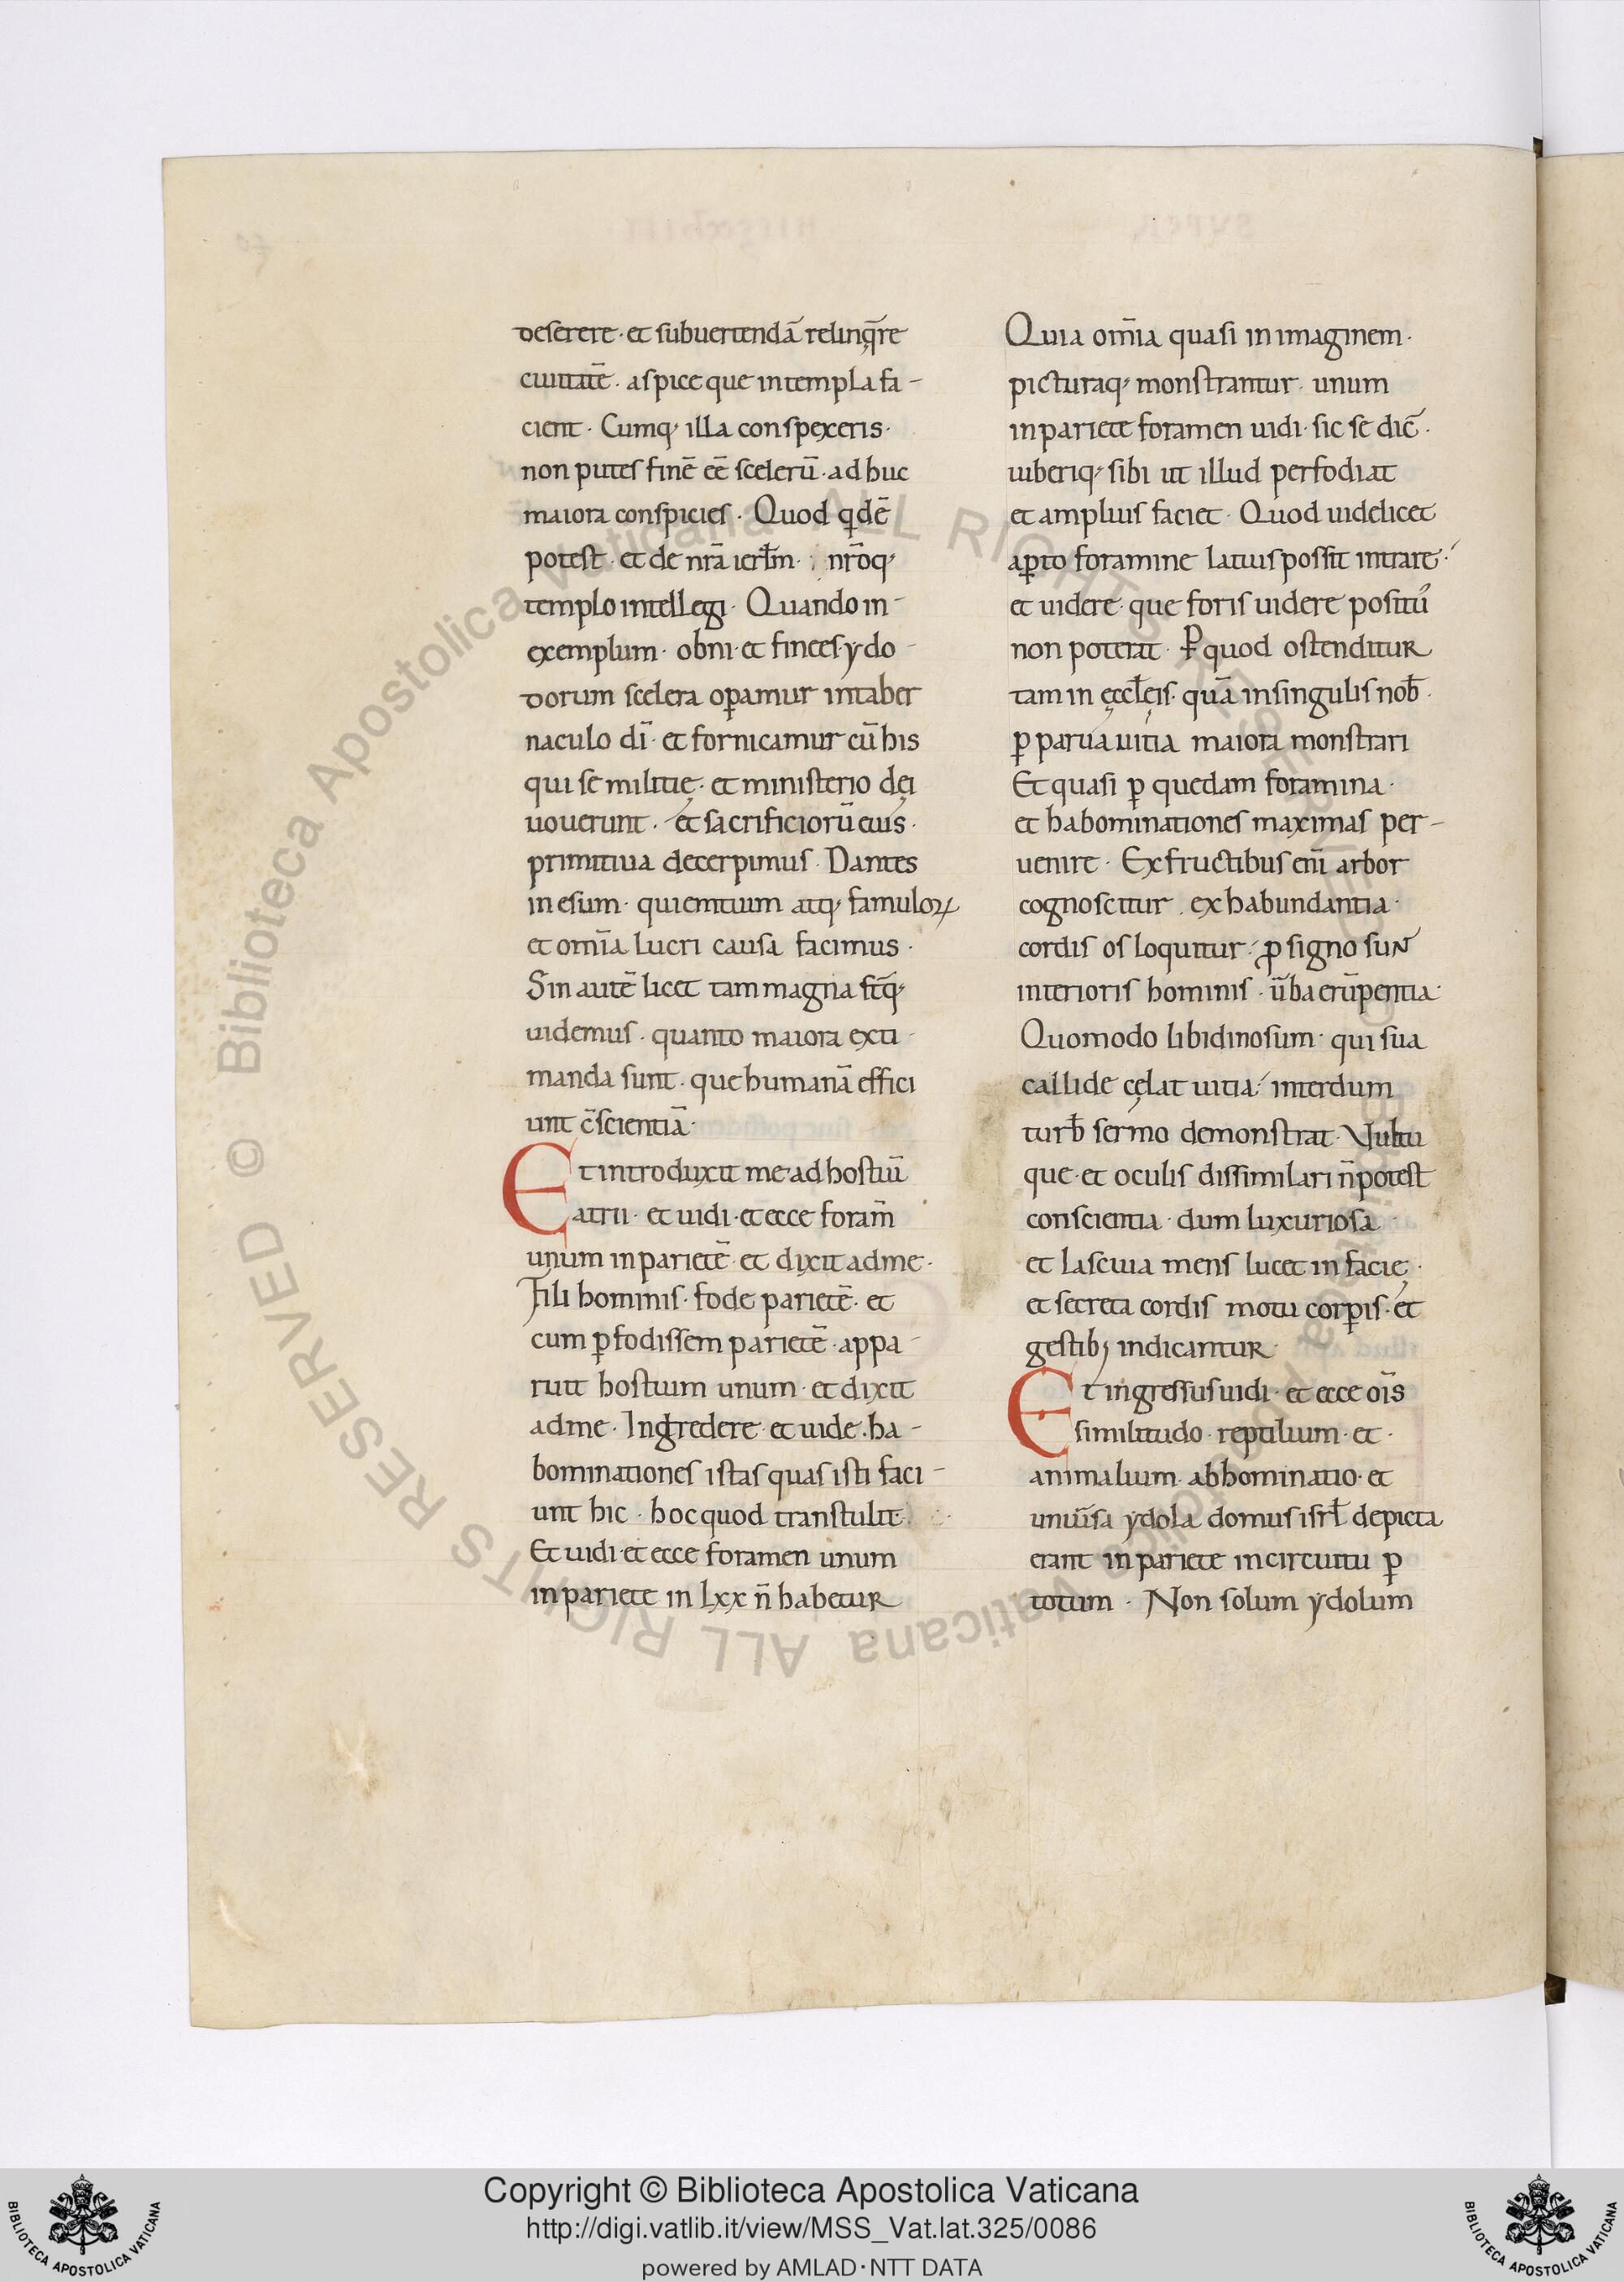 deserere· et subuertendā relinq̄re
ciuitatē· aspice que in templa fa-
cient· Cumq; illa conspexeris·
non putes finē eē scelerū· adhuc
maiora conspicies· Quod qdē
potest· et de nr̄a ierłm· nr̄oq;
templo intellegi· Quando in-
exemplum· obni· et finees· ydo-
dorum scelera oꝑamur intaber
naculo dī· et fornicamur cū his
qui se militię· et ministerio dei
uouerunt· et sacrificiorū eius·
primitiua decerpimus· Dantes
in esum· quiemtium atq; famuloꝝ
et om̄ia lucri causa facimus·
Sin autē licet tam magna st̄q;
uidemus· quanto maiora exti-
manda sunt· que humanā effici
unt c̄scientiā·
Et introduxit me ad hostiū
atrii· et uidi· et ecce foram̄
unum in parietē· et dixit adme·
Fili hominis· fode parietē· et
cum ꝑfodissem parietē· appa-
ruit hostium unum· et dixit
adme· Ingredere· et uide· ha-
bominationes istas quas isti faci-
unt hic· hoc quod transtulit·
Et uidi· et ecce foramen unum
in pariete in lxx n̄ habetur
Quia om̄ia quasi in imaginem·
picturaq; monstrantur· unum
in pariete foramen uidi· sic se dic̄·
iuberiq; sibi ut illud perfodiat
et amplius faciet· Quod uidelicet
aꝑto foramine latius possit intrare·
et uidere· que foris uidere positū
non poterat· Ꝑ quod ostenditur
tam in ęccłęis· quā in singulis nob̄·
ꝑ parua uitia maiora monstrari
Et quasi ꝑ quedam foramina·
et habominationes maximas per-
uenire· Ex fructibus enī arbor
cognoscitur· ex habundantia·
cordis os loquitur· ꝓ signo sun̄
interioris hominis· ūba erūpentia·
Quomodo libidinosum· qui sua
callide cęlat uitia· interdum
turb̄ sermo demonstrat· Vultu
que· et oculis dissimilari n̄ potest
conscientia· dum luxuriosa
et lasciua mens lucet in facie·
et secreta cordis motu corꝑis· et
gestibꝫ indicantur·
Et ingressus uidi· et ecce oīs
similitudo· reptilium· et·
animalium· abhominatio· et
uniūsa ydola domus isrł depicta
erant in pariete in circuitu ꝑ
totum· Non solum ydolum
Copyright © Biblioteca Apostolica Vaticana
http://digi.vatlib.it/view/MSS_Vat.lat.325/0086
powered by AMLAD·NTT DATA
BIBLIOTECA APOSTOLICA VATICANA
BIBLIOTECA APOSTOLICA VATICANA
© Biblioteca Apostolica Vaticana ALL RIGHTS RESERVED
© Biblioteca Apostolica Vaticana ALL RIGHTS RESERVED